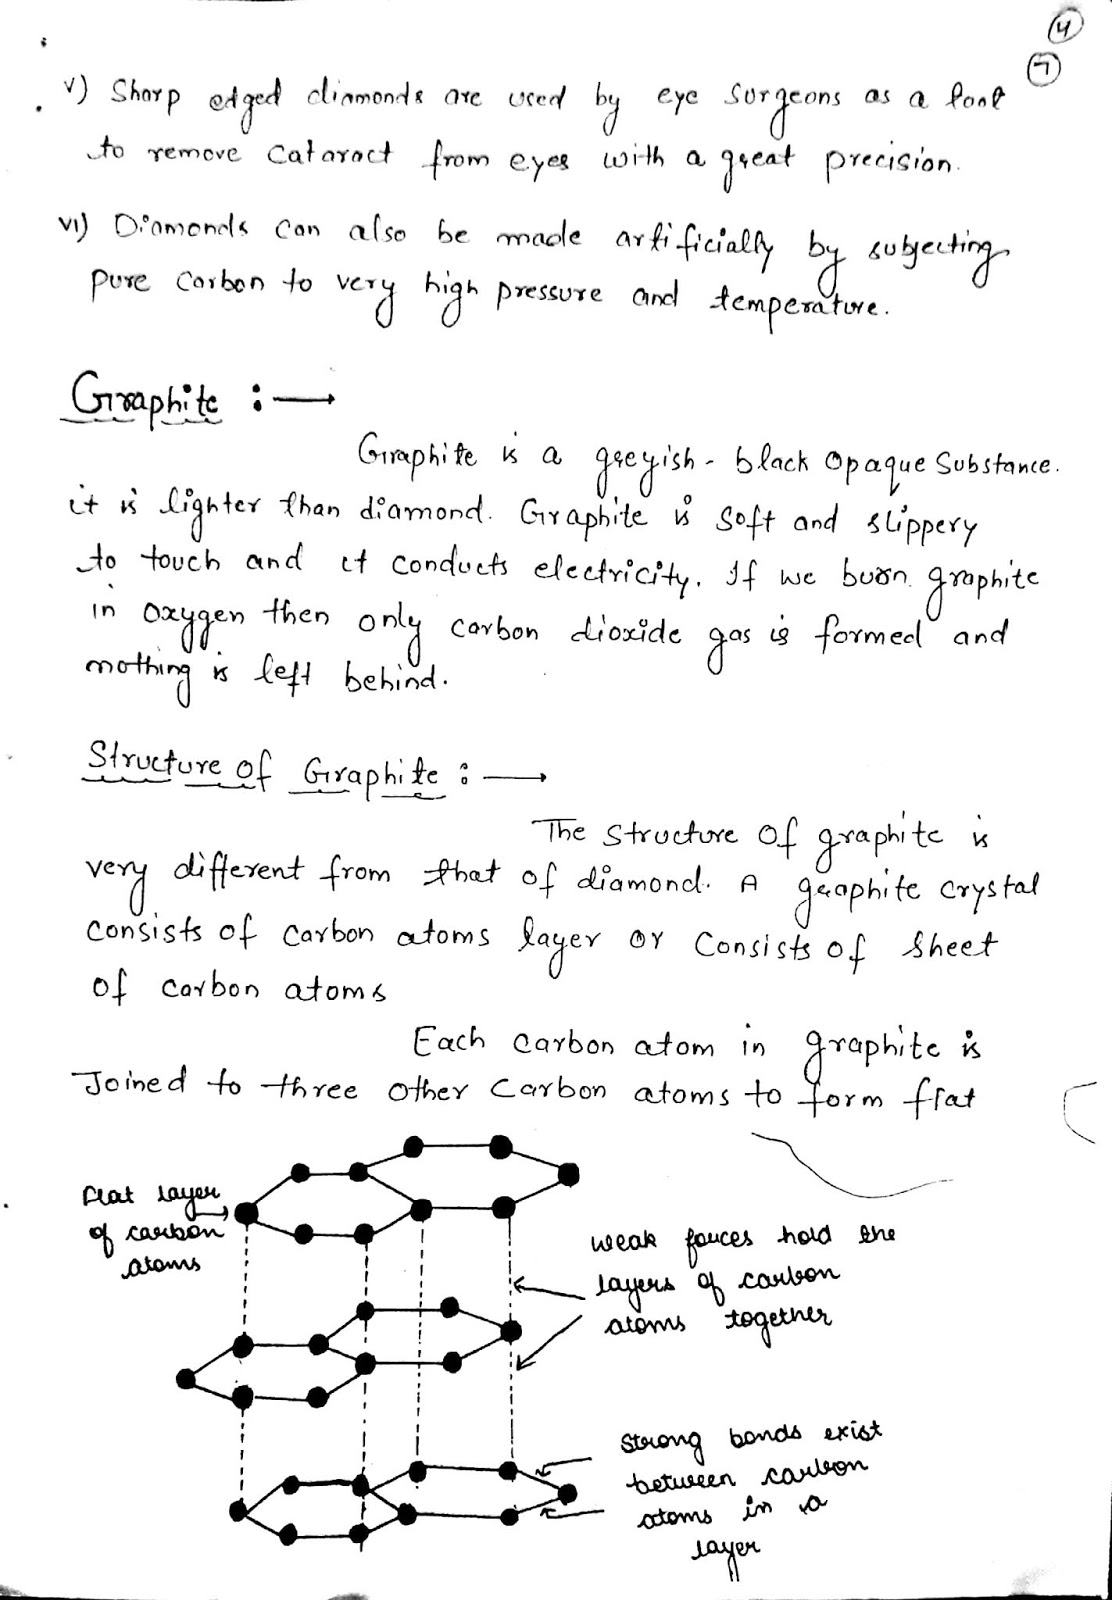 4
7
v) Sharp edged diamonds are used by eye surgeons as a tool
to remove cataract from eyes with a great precision.
vi) Diamonds can also be made artificially by subjecting
pure carbon to very high pressure and temperature.
Graphite :→
Graphite is a greyish-black opaque substance.
it is lighter than diamond. Graphite is soft and slippery
to touch and it conducts electricity. If we burn graphite
in oxygen then only carbon dioxide gas is formed and
nothing is left behind.
Structure of Graphite :→
The structure of graphite is
very different from that of diamond. A graphite crystal
consists of carbon atoms layer or consists of sheet
of carbon atoms
Each carbon atom in graphite is
Joined to three other carbon atoms to form flat
flat layer
of carbon
atoms
weak forces hold the
layers of carbon
atoms together
strong bonds exist
between carbon
atoms in a
layer